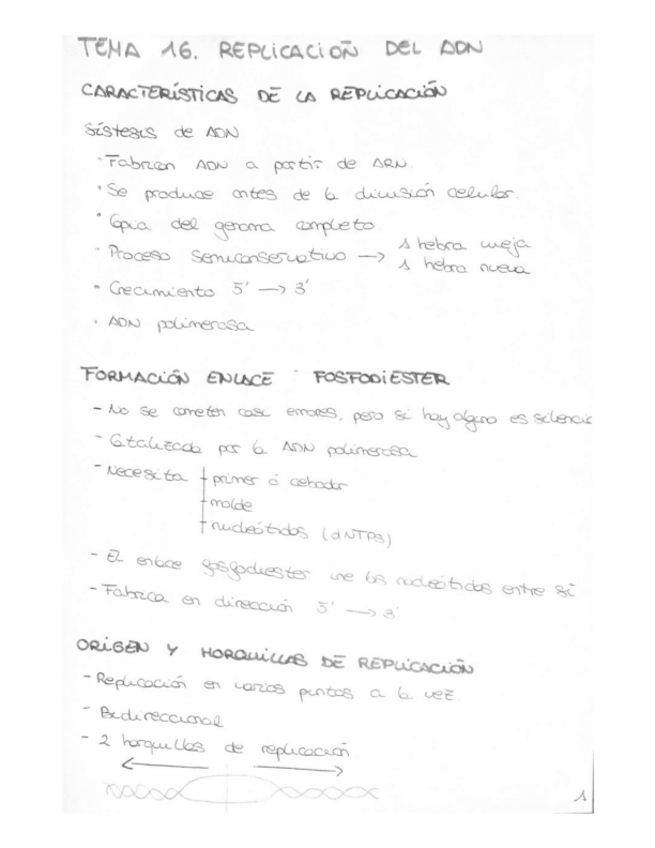 TEMA 16. REPLICACIÓN DEL ADN
CARACTERÍSTICAS DE LA REPLICACIÓN
Síntesis de ADN
· Fabrican ADN a partir de ARN.
· Se produce antes de la división celular.
· Copia del genoma completo
· Proceso semiconservativo → 1 hebra vieja
1 hebra nueva
· Crecimiento 5' → 3'
· ADN polimerasa
FORMACIÓN ENLACE FOSFODIESTER
- No se cometen casi errores, pero si hay alguno es silencic
- Catalizada por la ADN polimerasa
- Necesita primer ó cebador
molde
nucleótidos (dNTPs)
- El enlace fosfodiester une los nucleótidos entre sí
- Fabrica en dirección 5' → 3'
ORIGEN Y HORQUILLAS DE REPLICACIÓN
- Replicación en varios puntos a la vez
- Bidireccional
- 2 horquillas de replicación
1